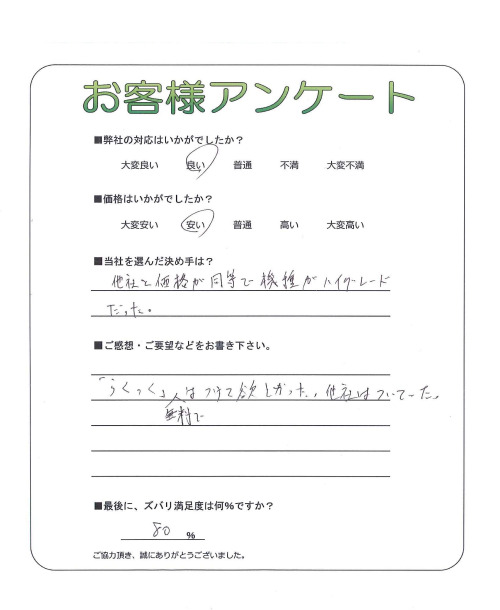 お客様アンケート
■弊社の対応はいかがでしたか？
大変良い 良い 普通 不満 大変不満
■価格はいかがでしたか？
大変安い 安い 普通 高い 大変高い
■当社を選んだ決め手は？
他社と価格が同等で機種がハイグレード
だった。
■ご感想・ご要望などをお書き下さい。
「らくっく」は つけて欲しかった、他社はついてた。
無料で
■最後に、ズバリ満足度は何%ですか？
80 %
ご協力頂き、誠にありがとうございました。